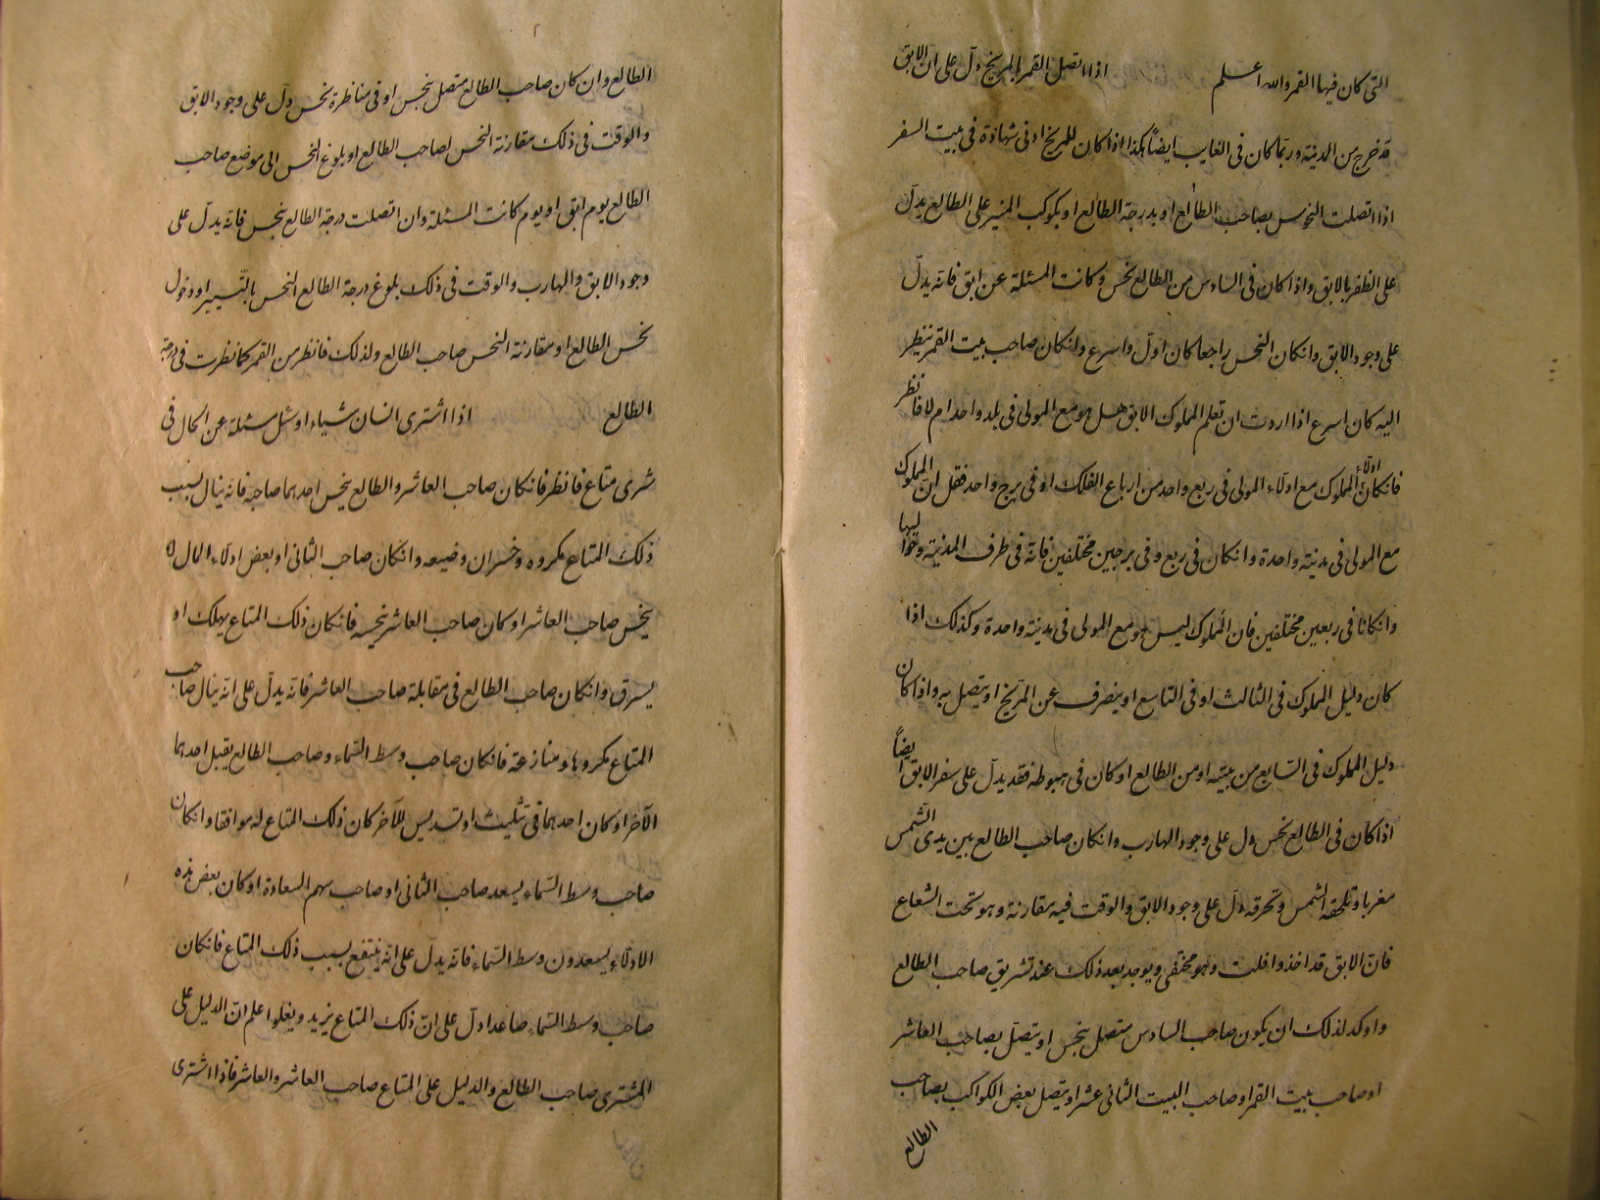 التى كان فيها القمر والله اعلم اذا اتصل القمر بالمريخ دل على ان الابق
قد خرج من المدينة وربما كان فى الغايب ايضاً هكذا اذا كان للمريخ ادنى شهادة فى بيت السفر
اذا اتصلت النحوس بصاحب الطالع او بدرجة الطالع او بكوكب المنير على الطالع يدل
على الظفر بالابق واذا كان فى السادس من الطالع نحس وكانت المسئلة عن ابق فانه يدل
على وجود الابق وانكان النحس راجعا كان اول واسرع وانكان صاحب بيت القمر ينظر
اليه كان اسرع اذا اردت ان تعلم المملوك الابق هل هو مع المولى فى بلد واحد ام لا فانظر
فانكان ادلاء المملوك مع ادلاء المولى فى ربع واحد من ارباع الفلك او فى برج واحد فقل ان المملوك
مع المولى فى مدينة واحدة وانكان فى ربع وفى برجين مختلفين فانه فى طرف المدينة وحواليها
وانكانا فى ربعين مختلفين فان المملوك ليس هو مع المولى فى مدينة واحدة وكذلك اذا
كان دليل المملوك فى الثالث او فى التاسع او ينصرف عن المريخ او يتصل به واذا كان
دليل المملوك فى السابع من بيته او من الطالع او كان فى هبوطه فقد يدل على سفر الابق ايضاً
اذا كان فى الطالع نحس دل على وجود الهارب وانكان صاحب الطالع بين يدى الشمس
مغربا وتلحقه الشمس وتحرقه دل على وجود الابق والوقت فيه مقارنة وهو تحت الشعاع
فان الابق قد اخذ وافلت وهو مختفى ويوجد بعد ذلك عند تشريق صاحب الطالع
واوكد لذلك ان يكون صاحب السادس متصل بنحس او يتصل بصاحب العاشر
او صاحب بيت القمر او صاحب البيت الثانى عشر او يتصل بعض الكواكب بصاحب
الطالع
الطالع وان كان صاحب الطالع متصل بنحس او فى مناظرة نحس دل على وجود الابق
والوقت فى ذلك مقارنة النحس لصاحب الطالع او بلوغ النحس الى موضع صاحب
الطالع يوم ابق او يوم كانت المسئلة وان اتصلت درجة الطالع بنحس فانه يدل على
وجود الابق والهارب والوقت فى ذلك بلوغ درجة الطالع النحس بالتسيير او دخول
نحس الطالع او مقارنة النحس صاحب الطالع ولذلك فانظر من القمر كما نظرت فى درجة
الطالع اذا اشترى انسان شياء او سئل مسئلة عن الحال فى
شرى متاع فانظر فانكان صاحب العاشر والطالع ينحس احدهما صاحبه فانه ينال بسبب
ذلك المتاع مكروه وخسران وضيعه وانكان صاحب الثانى او بعض ادلاء المال
ينحس صاحب العاشر او كان صاحب العاشر ينحسه فانكان ذلك المتاع يهلك او
يسرق وانكان صاحب الطالع فى مقابلة صاحب العاشر فانه يدل على انه ينال صاحب
المتاع مكروها ومنازعة فانكان صاحب وسط السماء وصاحب الطالع يقبل احدهما
الآخر او كان احدهما فى تثليث او تسديس للآخر كان ذلك المتاع له موافقا وانكان
صاحب وسط السماء يسعد صاحب الثانى او صاحب سهم السعادة او كان بعض هذه
الادلاء يسعدون وسط السماء فانه يدل على انه ينتفع بسبب ذلك المتاع فانكان
صاحب وسط السماء صاعدا دل على ان ذلك المتاع يزيد ويغلوا اعلم ان الدليل على
المشترى صاحب الطالع والدليل على المتاع صاحب العاشر والعاشر فاذا اشترى